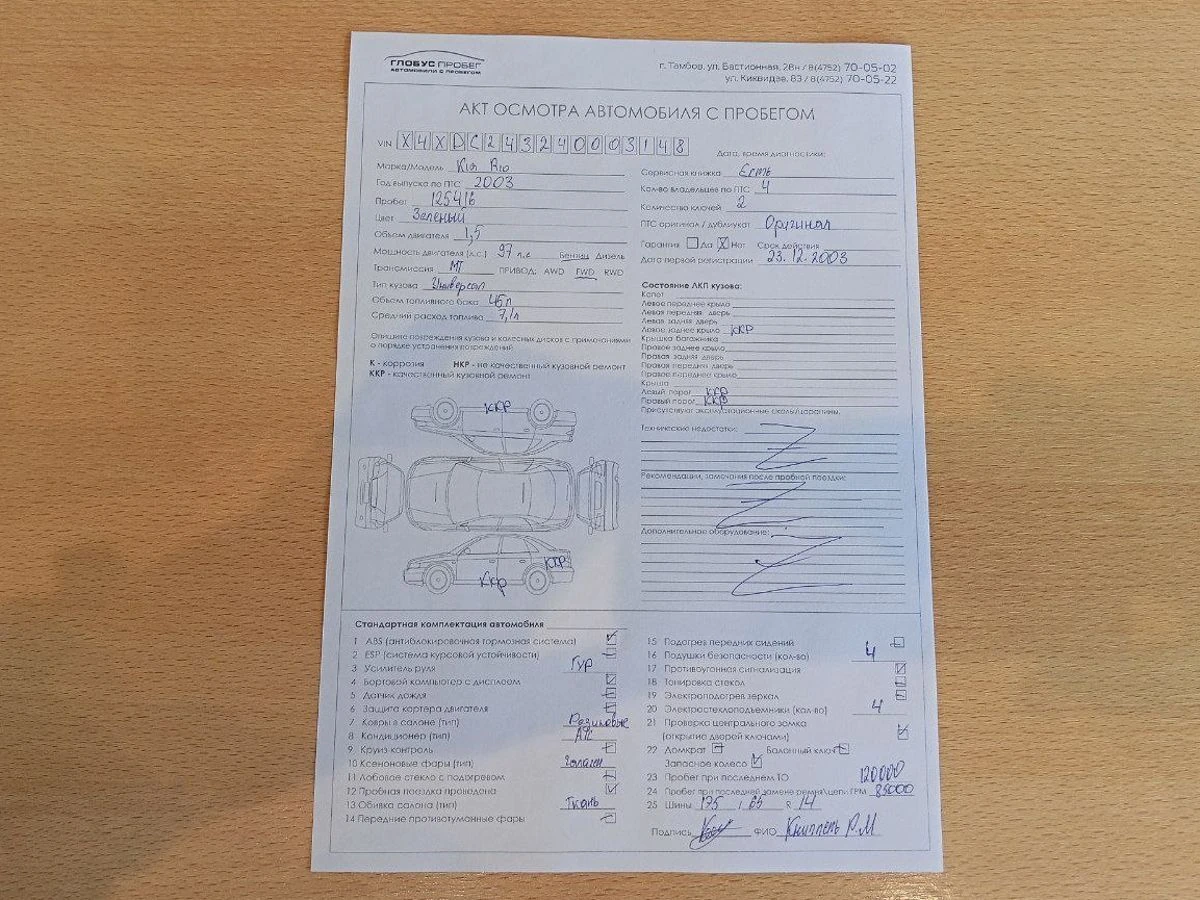 ГЛОБУС ПРОБЕГ
АВТОМОБИЛИ С ПРОБЕГОМ
г. Тамбов, ул. Бастионная, 28н / 8(4752) 70-05-02
ул. Киквидзе, 83 / 8(4752) 70-05-22
АКТ ОСМОТРА АВТОМОБИЛЯ С ПРОБЕГОМ
VIN X4XDC243240003148
Марка/Модель Kia Rio
Год выпуска по ПТС 2003
Пробег 125416
Цвет Зеленый
Объем двигателя 1,5
Мощность двигателя (л.с.) 97 л.с Бензин Дизель
Трансмиссия МТ ПРИВОД: AWD FWD RWD
Тип кузова Универсал
Объем топливного бака 45л
Средний расход топлива 7,1л
Дата, время диагностики:
Сервисная книжка Есть
Кол-во владельцев по ПТС 4
Количество ключей 2
ПТС оригинал / дубликат Оригинал
Гарантия Да X Нет Срок действия
Дата первой регистрации 23.12.2003
Опишите повреждения кузова и колесных дисков с примечаниями
о порядке устранения повреждений
К - коррозия НКР - не качественный кузовной ремонт
ККР - качественный кузовной ремонт
ККР
ККР
ККР
Состояние ЛКП кузова:
Капот
Левое переднее крыло
Левая передняя дверь
Левая задняя дверь
Левое заднее крыло ККР
Крышка багажника
Правое заднее крыло
Правая задняя дверь
Правая передняя дверь
Правое переднее крыло
Крыша
Левый порог ККР
Правый порог ККР
Присутствуют эксплуатационные сколы/царапины.
Технические недостатки:
Рекомендации, замечания после пробной поездки:
Дополнительное оборудование:
Стандартная комплектация автомобиля
1 ABS (антиблокировочная тормозная система)
2 ESP (система курсовой устойчивости)
3 Усилитель руля Гур
4 Бортовой компьютер с дисплеем
5 Датчик дождя
6 Защита картера двигателя
7 Ковры в салоне (тип) Резиновые
8 Кондиционер (тип) А/С
9 Круиз-контроль
10 Ксеноновые фары (тип) Галаген
11 Лобовое стекло с подогревом
12 Пробная поездка проведена
13 Обивка салона (тип) Ткань
14 Передние противотуманные фары
15 Подогрев передних сидений
16 Подушки безопасности (кол-во) 4
17 Противоугонная сигнализация
18 Тонировка стекол
19 Электроподогрев зеркал
20 Электростеклоподъемники (кол-во) 4
21 Проверка центрального замка
(открытие дверей ключами)
22 Домкрат Балонный ключ
Запасное колесо
23 Пробег при последнем ТО 120000
24 Пробег при последней замене ремня/цепи ГРМ 85000
25 Шины 175 / 65 R 14
Подпись ФИО Книппель Р.М